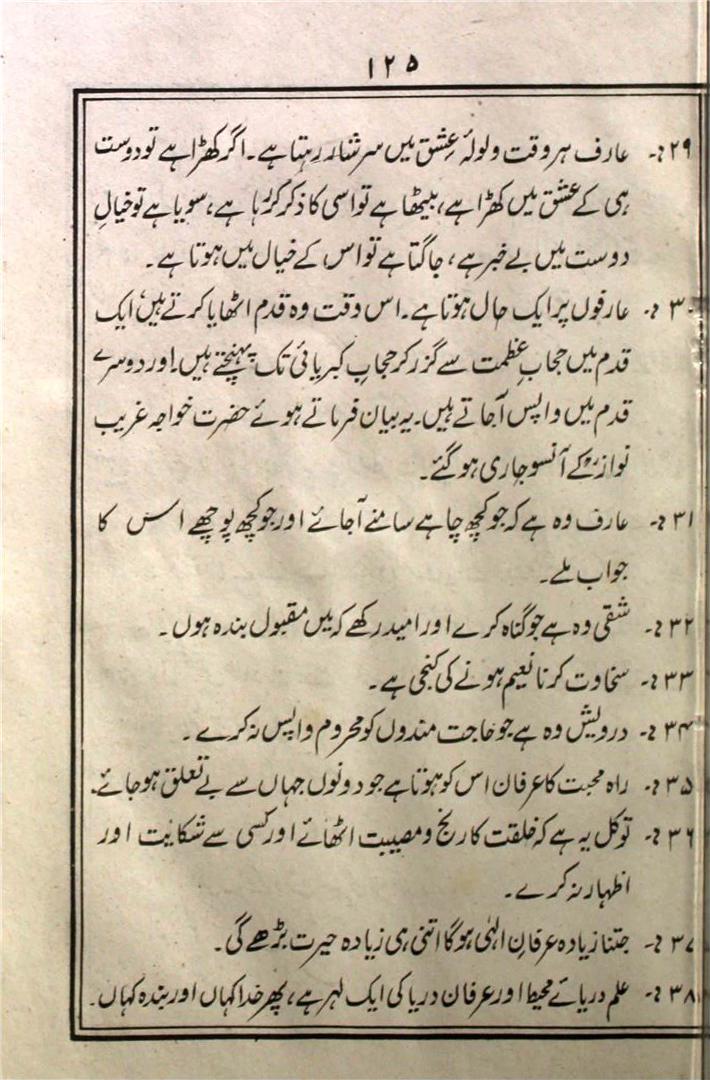 ۱۲۵
۲۹:۔ عارف ہر وقت ولولۂ عشق میں سرشار رہتا ہے۔ اگر کھڑا ہے تو دوست
ہی کے عشق میں کھڑا ہے، بیٹھا ہے تو اسی کا ذکر کر رہا ہے، سویا ہے تو خیالِ
دوست میں بے خبر ہے، جاگتا ہے تو اس کے خیال میں ہوتا ہے۔
۳۰:۔ عارفوں پر ایک حال ہوتا ہے۔ اس وقت وہ قدم اٹھایا کرتے ہیں، ایک
قدم میں حجابِ عظمت سے گزر کر حجابِ کبریائی تک پہنچتے ہیں۔ اور دوسرے
قدم میں واپس آجاتے ہیں۔ یہ بیان فرماتے ہوئے حضرت خواجہ غریب
نوازؒ کے آنسو جاری ہو گئے۔
۳۱:۔ عارف وہ ہے کہ جو کچھ چاہے سامنے آجائے اور جو کچھ پوچھے اس کا
جواب ملے۔
۳۲:۔ شقی وہ ہے جو گناہ کرے اور امید رکھے کہ میں مقبول بندہ ہوں۔
۳۳:۔ سخاوت کرنا نعیم ہونے کی کنجی ہے۔
۳۴:۔ درویش وہ ہے جو حاجت مندوں کو محروم واپس نہ کرے۔
۳۵:۔ راہ محبت کا عرفان اس کو ہوتا ہے جو دونوں جہاں سے بے تعلق ہو جائے۔
۳۶:۔ توکل یہ ہے کہ خلقت کا رنج و مصیبت اٹھائے اور کسی سے شکایت اور
اظہار نہ کرے۔
۳۷:۔ جتنا زیادہ عرفانِ الٰہی ہوگا اتنی ہی زیادہ حیرت بڑھے گی۔
۳۸:۔ علم دریائے محیط اور عرفان دریا کی ایک لہر ہے، پھر خدا کہاں اور بندہ کہاں۔